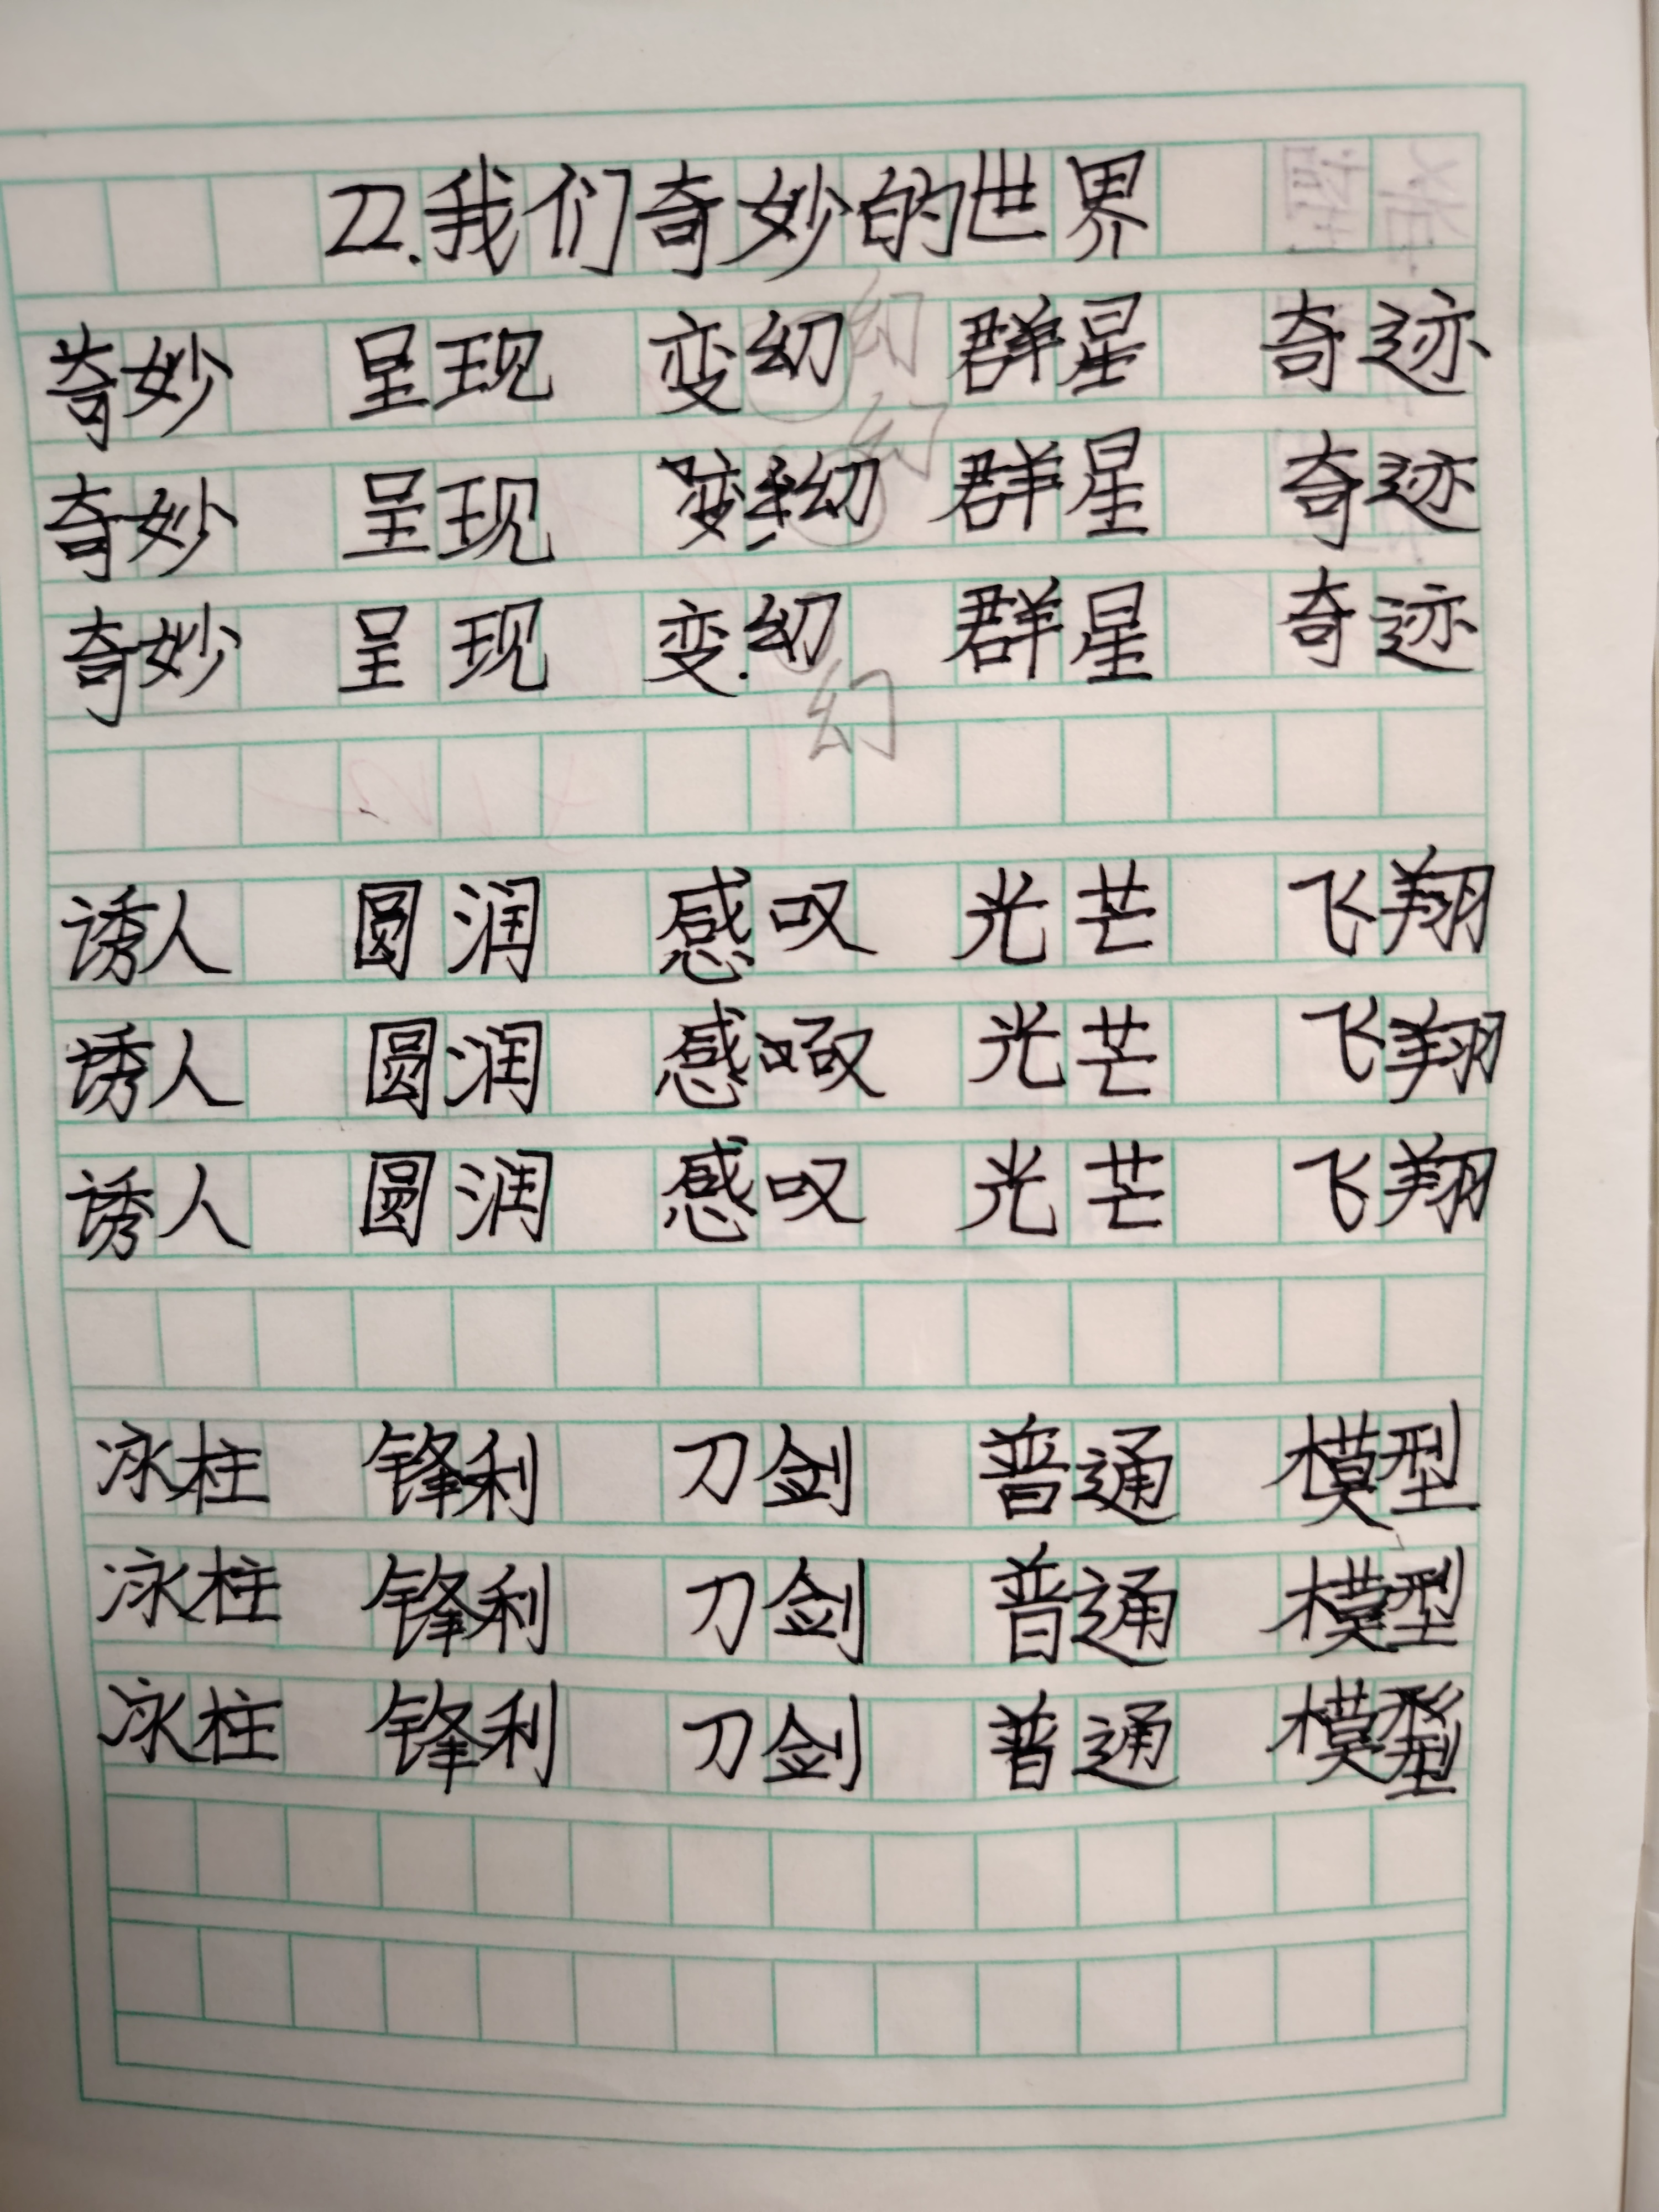 22.我们奇妙的世界
奇妙 呈现 变幼 幻 群星 奇迹
奇妙 呈现 变幼 幻 群星 奇迹
奇妙 呈现 变.幼 群星 奇迹
幻
诱人 圆润 感叹 光芒 飞翔
诱人 圆润 感叹 光芒 飞翔
诱人 圆润 感叹 光芒 飞翔
冰柱 锋利 刀剑 普通 模型
冰柱 锋利 刀剑 普通 模型
冰柱 锋利 刀剑 普通 模型